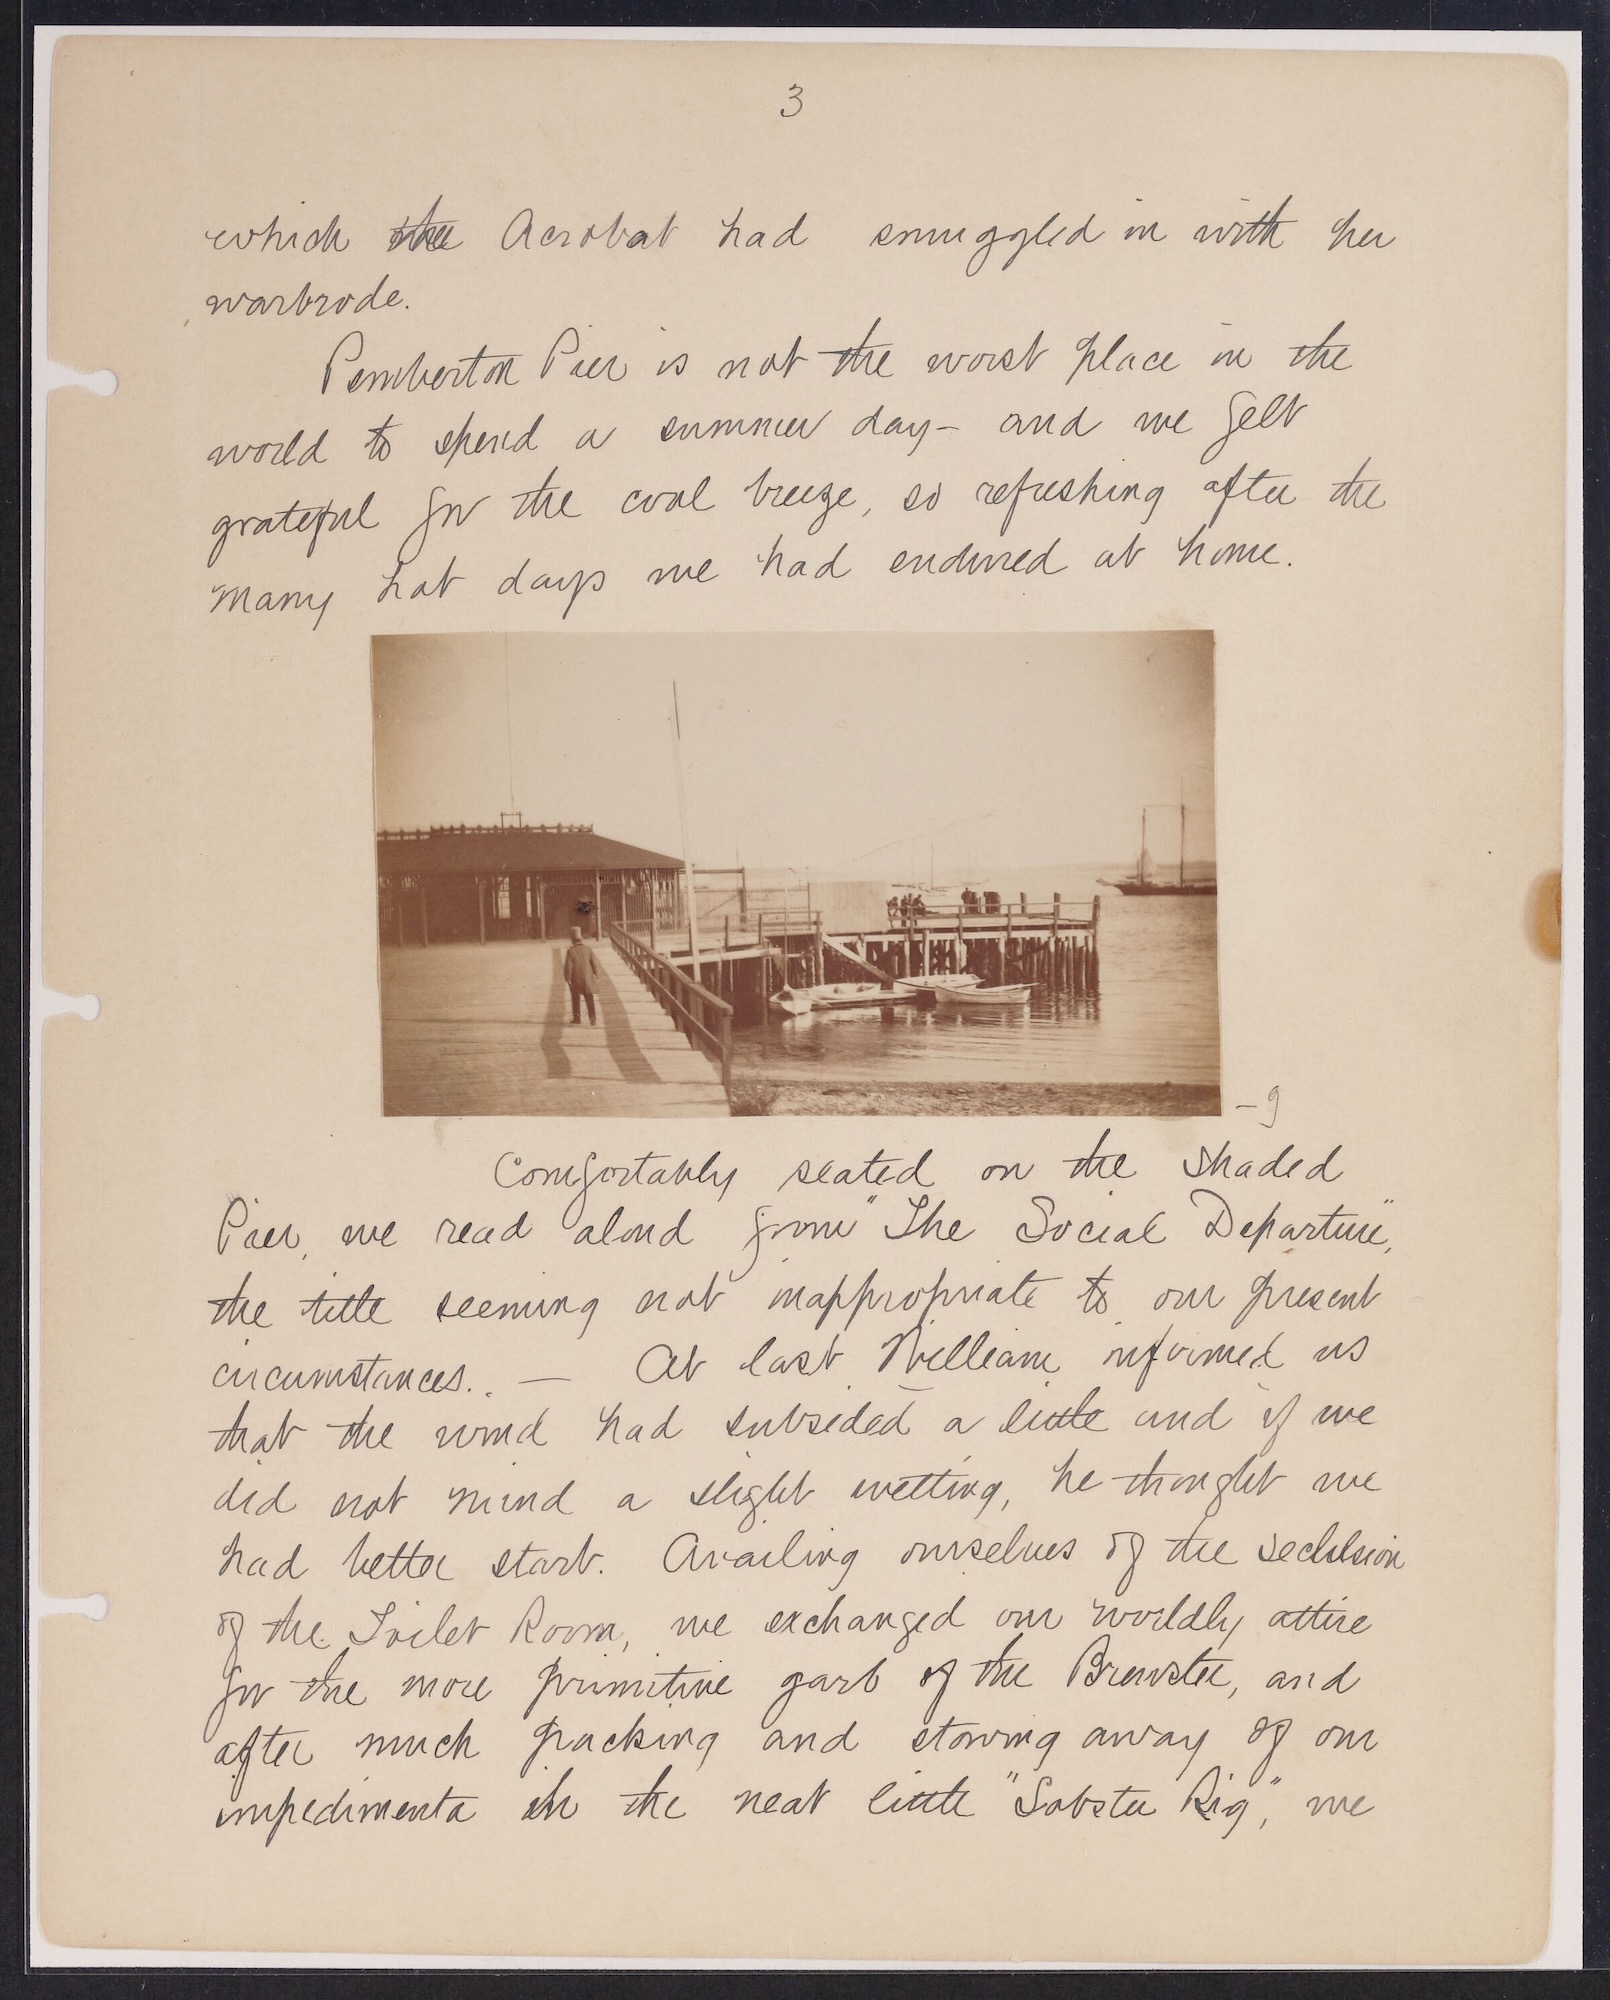 3
which the Acrobat had smuggled in with her
wartrode.
Pemberton Pier is not the worst place in the
world to spend a summer day- and we felt
grateful for the cool breeze, so refreshing after the
many hot days we had endured at home.
- 9
Comfortably seated on the shaded
Pier, we read aloud from "The Social Departure",
the title seeming not inappropriate to our present
circumstances. . — At last William informed us
that the wind had subsided a little and if we
did not mind a slight wetting, he thought we
had better start. Availing ourselves of the seclusion
of the Toilet Room, we exchanged our worldly attire
for the more primitive garb of the Brewster, and
after much packing and stowing away of our
impedimenta in the neat little "Lobster Rig", we